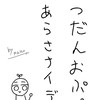 つだんおぷ
あらささイデ
by